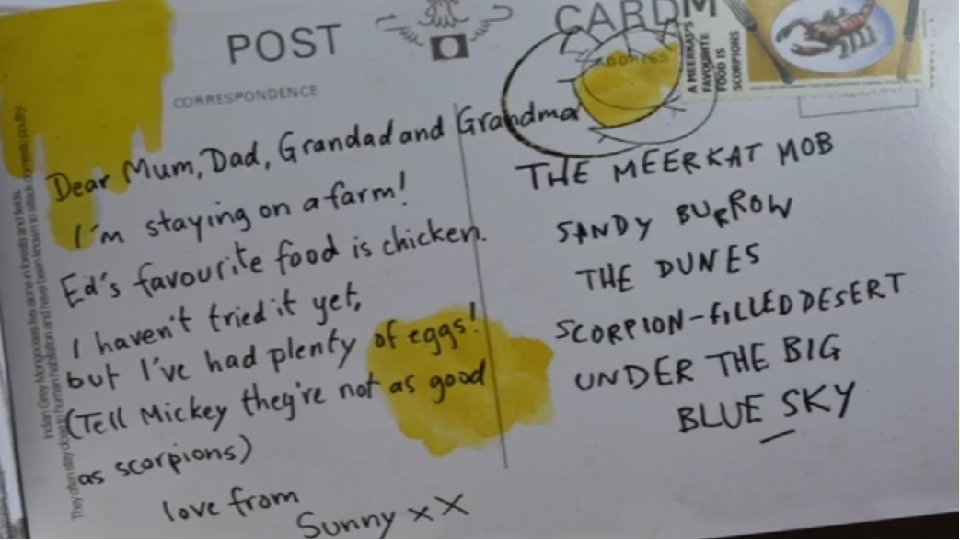 POST CARD
CORRESPONDENCE
ADDRESS
A MEERKAT'S
FAVOURITE
FOOD IS
SCORPIONS
Dear Mum, Dad, Grandad and Grandma
I'm staying on a farm!
Ed's favourite food is chicken.
I haven't tried it yet,
but I've had plenty of eggs!
(Tell Mickey they're not as good
as scorpions)
love from
Sunny xx
THE MEERKAT MOB
SANDY BURROW
THE DUNES
SCORPION-FILLED DESERT
UNDER THE BIG
BLUE SKY
Indian Grey Mongooses live alone in forests and fields.
They often stay close to human habitation and have been known to attack domestic poultry.